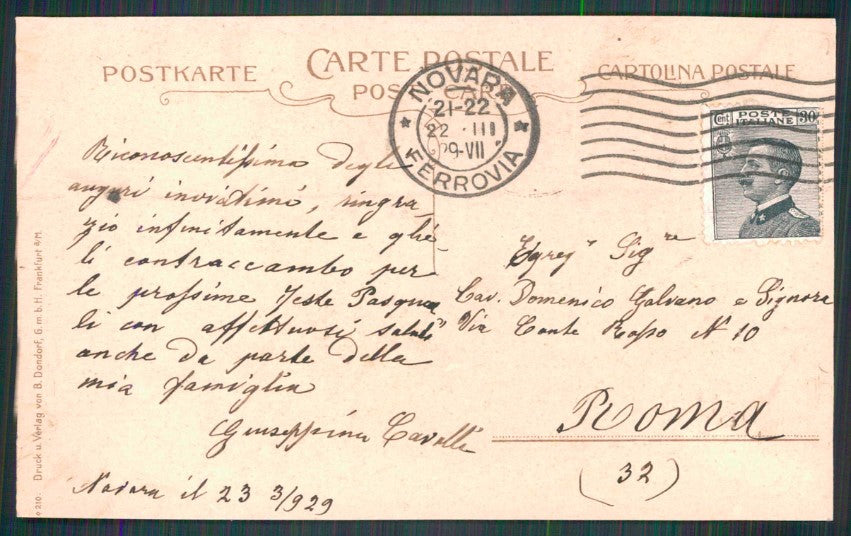 POSTKARTE
CARTE POSTALE
POST CARD
CARTOLINA POSTALE
NOVARA
21-22
22 · III
29-VII
FERROVIA
POSTE
ITALIANE
Cent 30
Riconoscentissima degli
auguri inviatimi, ringra-
zio infinitamente e glie-
li contraccambo per
le prossime feste Pasqua
li con affettuosi saluti
anche da parte della
mia famiglia
Giuseppina Cavalli
Novara il 23 3/929
Egreg° Sig re
Cav. Domenico Galvano e Signora
Via Conte Rosso N 10
Roma
(32)
210. Druck u. Verlag von B. Dondorf, G. m. b. H. Frankfurt a/M.